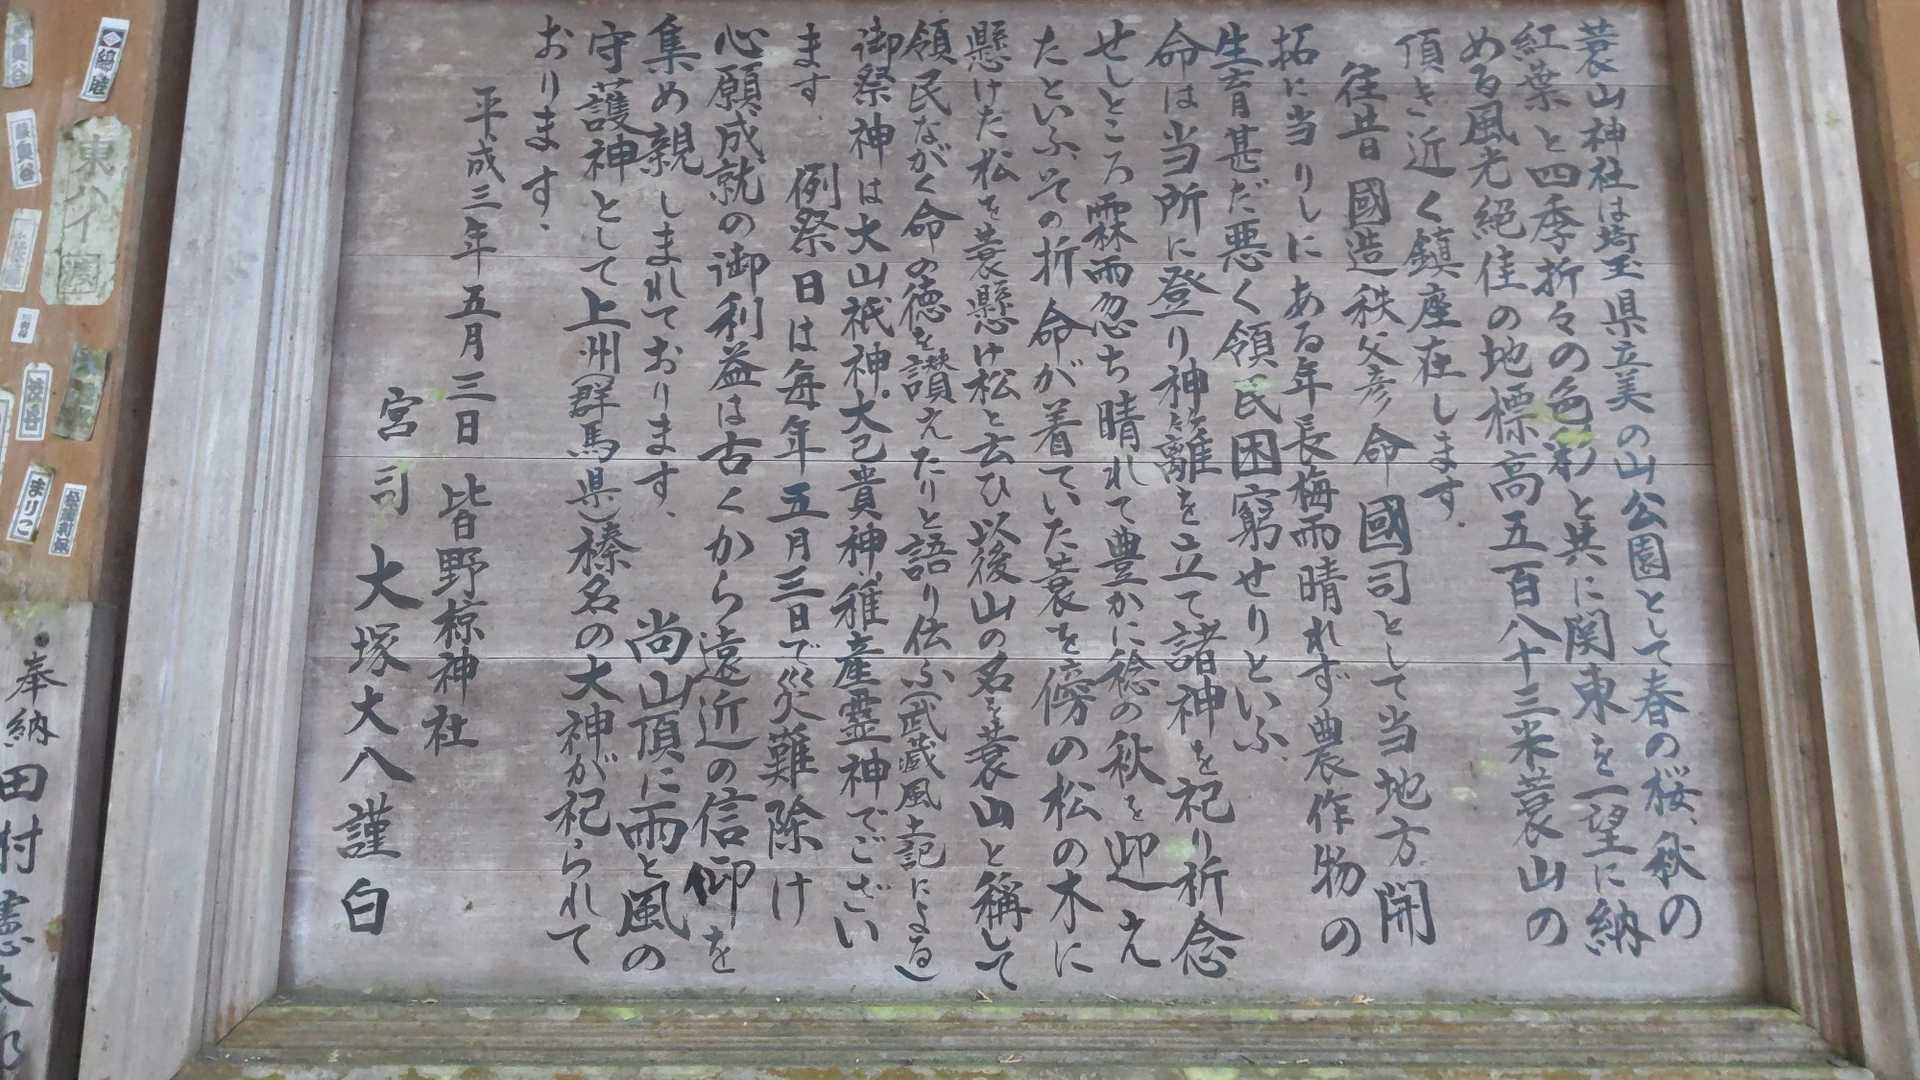 蓑山神社は埼玉県立美の山公園として春の桜、秋の
紅葉と四季折々の色彩と共に関東を一望に納
める風光絶佳の地標高五百八十三米蓑山の
頂き近く鎮座在します。
往昔國造秩父彦命國司として当地方開
拓に当りしにある年長梅雨晴れず農作物の
生育甚だ悪く領民困窮せりといふ
命は当所に登り神籬を立て諸神を祀り祈念
せしところ霖雨忽ち晴れて豊かに稔の秋を迎え
たといふ、その折命が着ていた蓑を傍の松の木に
懸けた松を蓑懸け松と云ひ以後山の名を蓑山と稱して
領民ながく命の徳を讃えたりと語り伝ふ(武蔵風土記による)
御祭神は大山祇神、大己貴神、稚産霊神でござい
ます 例祭日は毎年五月三日で災難除け
心願成就の御利益は古くから遠近の信仰を
集め親しまれております、 尚山頂に雨と風の
守護神として上州(群馬県)榛名の大神が祀られて
おります、
平成三年五月三日 皆野椋神社
宮司 大塚大八謹白
東ハイ園
渋谷
まりこ
奉納
田付